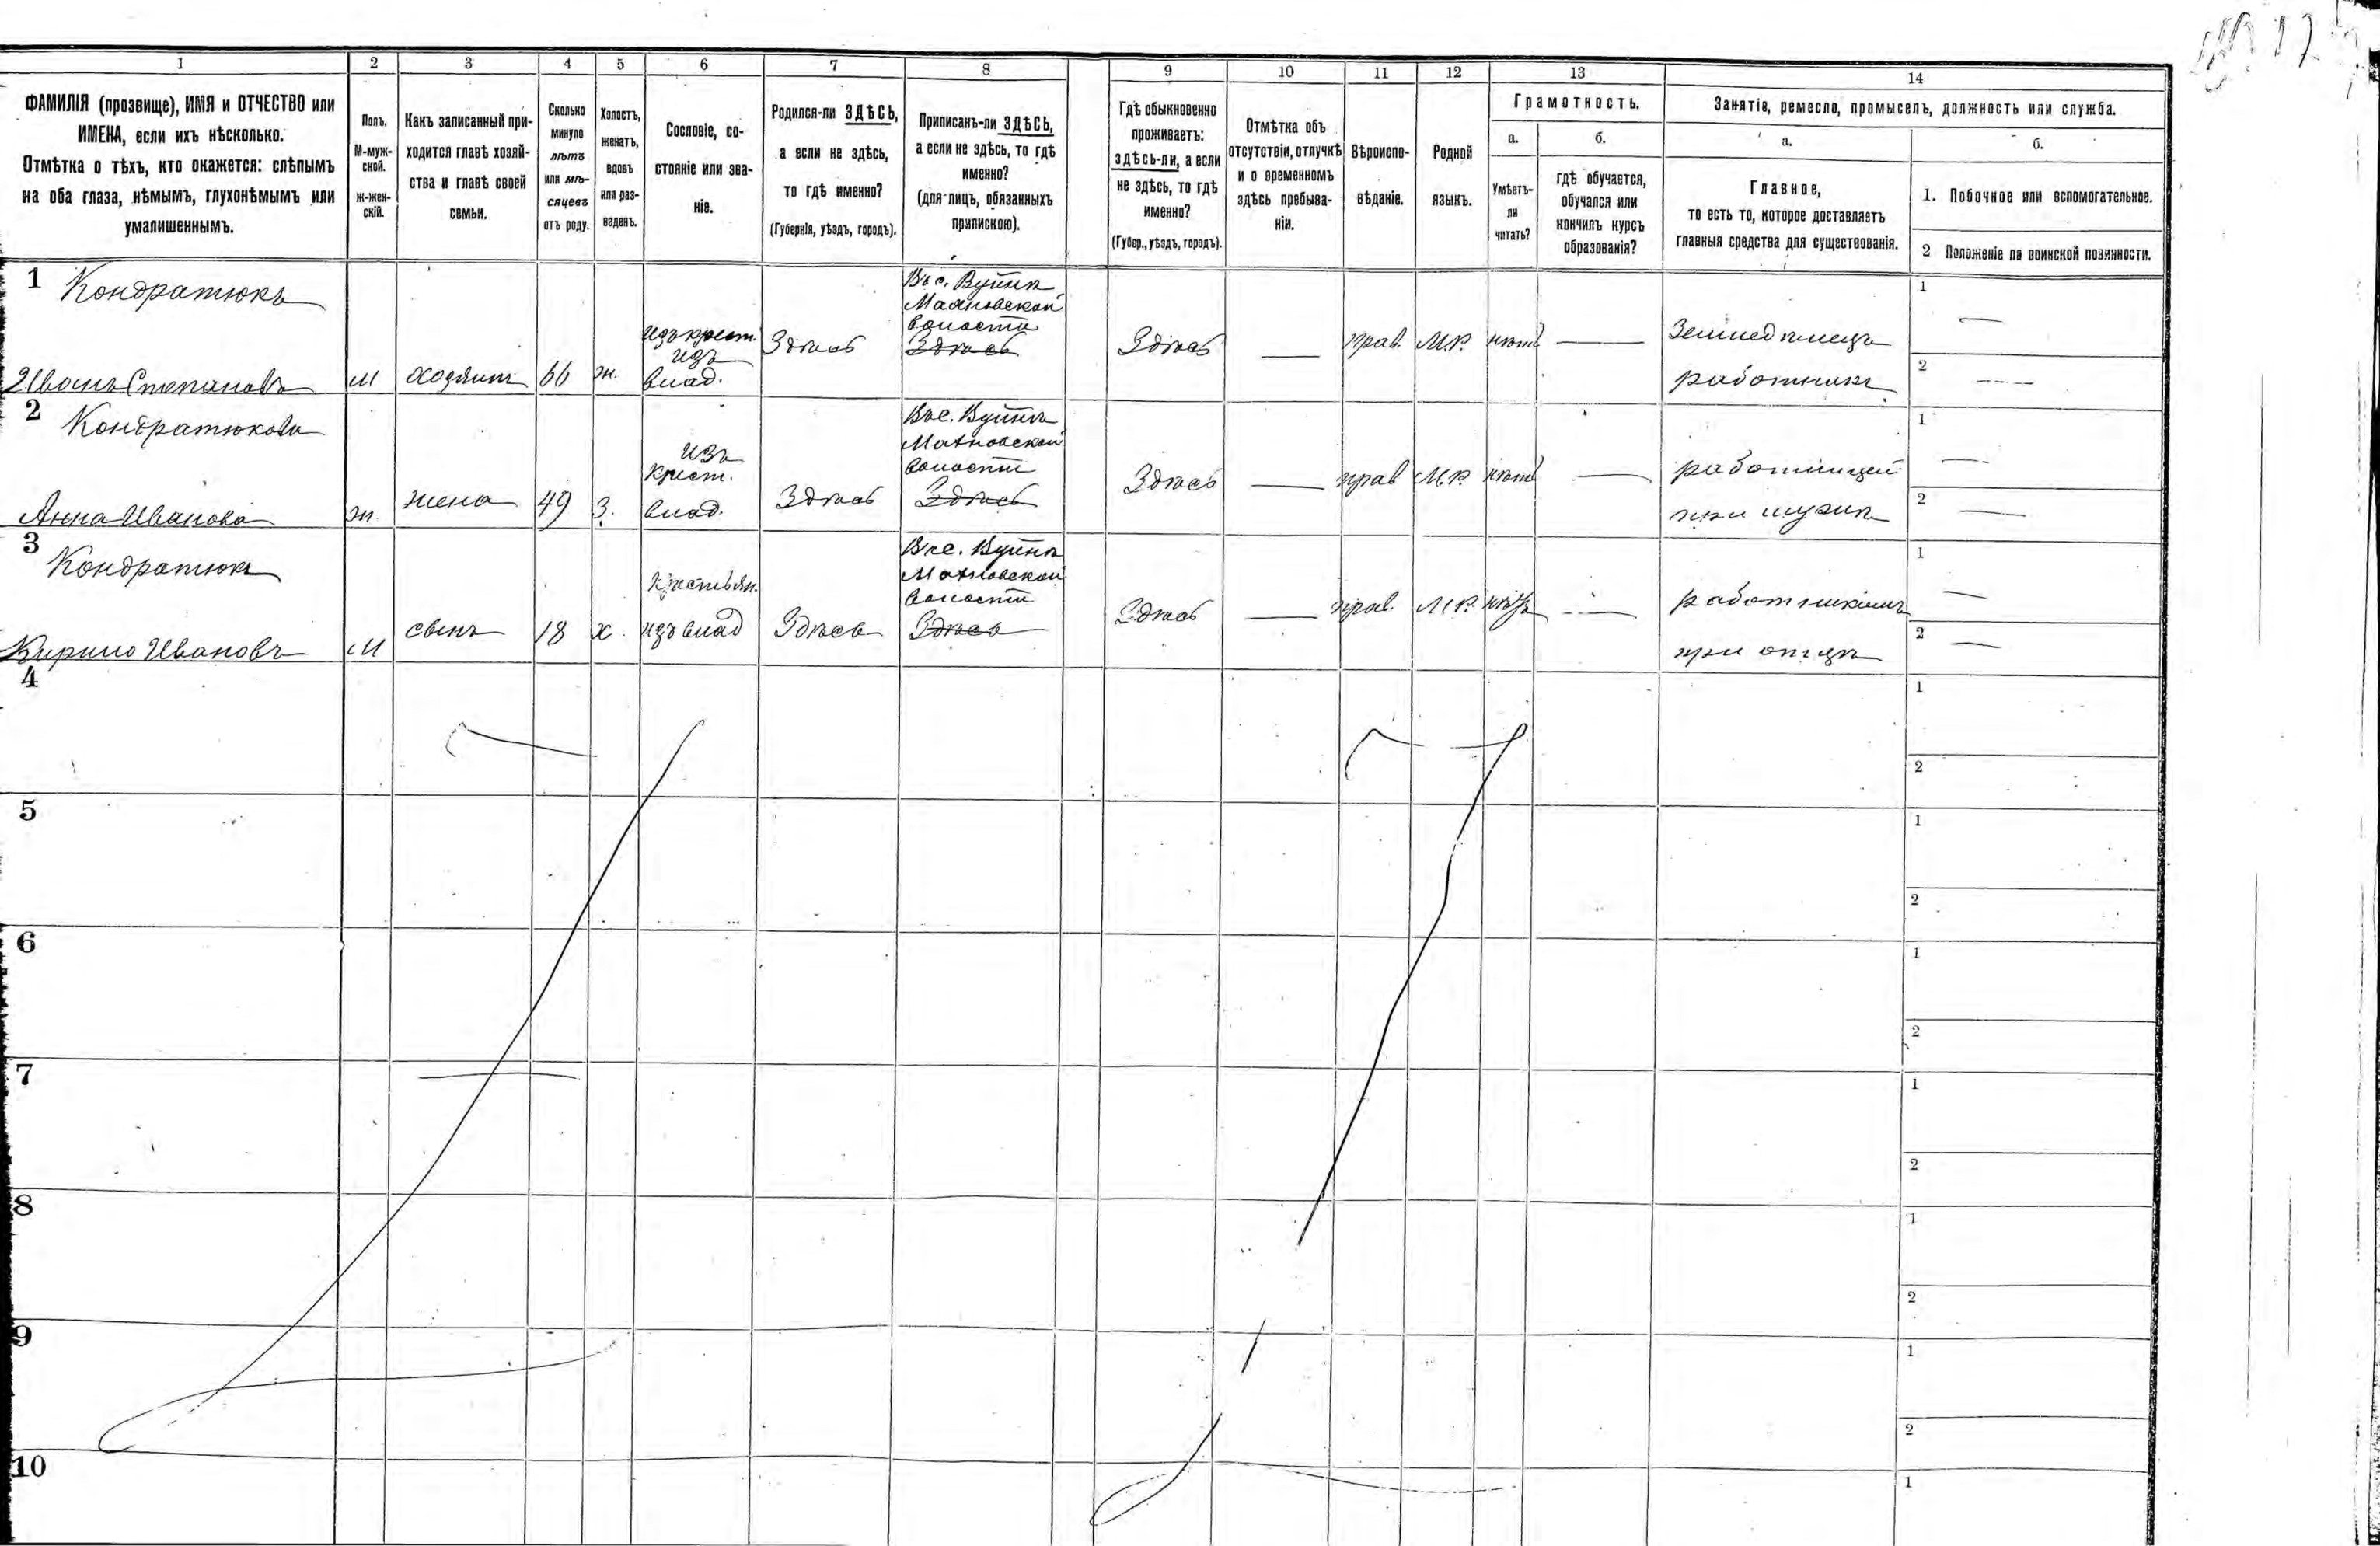 1 2 3 4 5 6 7 8 9 10 11 12 13 14
ФАМИЛІЯ (прозвище), ИМЯ и ОТЧЕСТВО или
ИМЕНА, если ихъ нѣсколько.
Отмѣтка о тѣхъ, кто окажется: слѣпымъ
на оба глаза, нѣмымъ, глухонѣмымъ или
умалишеннымъ.
Полъ.
М-муж-
ской.
ж-жен-
скій.
Какъ записанный при-
ходится главѣ хозяй-
ства и главѣ своей
семьи.
Сколько
минуло
лѣтъ
или мѣ-
сяцевъ
отъ роду.
Холостъ,
женатъ,
вдовъ
или раз-
веденъ.
Сословіе, со-
стояніе или зва-
ніе.
Родился-ли ЗДѢСЬ,
а если не здѣсь,
то гдѣ именно?
(Губернія, уѣздъ, городъ).
Приписанъ-ли ЗДѢСЬ,
а если не здѣсь, то гдѣ
именно?
(для лицъ, обязанныхъ
припискою).
Гдѣ обыкновенно
проживаетъ:
здѣсь-ли, а если
не здѣсь, то гдѣ
именно?
(Губер., уѣздъ, городъ).
Отмѣтка объ
отсутствіи, отлучкѣ
и о временномъ
здѣсь пребыва-
ніи.
Вѣроиспо-
вѣданіе.
Родной
языкъ.
Грамотность.
а.
Умѣетъ-
ли
читать?
б.
гдѣ обучается,
обучался или
кончилъ курсъ
образованія?
Занятіе, ремесло, промыселъ, должность или служба.
а.
Главное,
то есть то, которое доставляетъ
главныя средства для существованія.
б.
1. Побочное или вспомогательное.
2 Положеніе по воинской повинности.
1 Кондратюкъ
Иванъ Степановъ
м
хозяинъ
66
ж.
изъ крест.
изъ
влад.
Здѣсь
Махновской
волости
Здѣсь
Здѣсь
—
прав.
М.Р.
нѣтъ
—
Земледѣлецъ
работникъ
1 —
2 —
2 Кондратюкова
Анна Иванова
ж.
жена
49
З.
изъ
крест.
влад.
Здѣсь
Махновской
волости
Здѣсь
Здѣсь
—
прав
М.Р.
нѣтъ
—
работницей
при мужѣ
1 —
2 —
3 Кондратюкъ
Кирило Ивановъ
м
сынъ
18
х.
крестьян.
изъ влад
Здѣсь
Махновской
волости
Здѣсь
Здѣсь
—
прав.
М.Р.
нѣтъ
—
работникомъ
при отцѣ
1 —
2 —
4
1
2
5
1
2
6
1
2
7
1
2
8
1
2
9
1
2
10
1